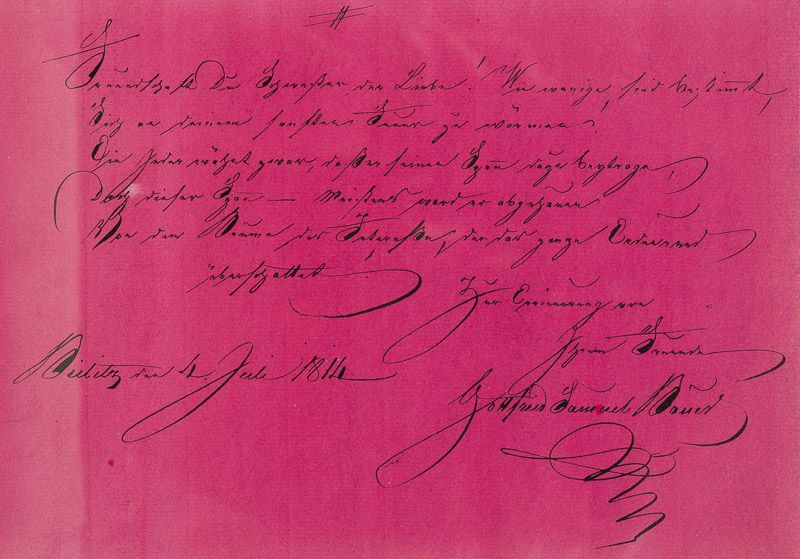 Freundschaft Du Schwester der Liebe! Wie wenige, sind bestimmt,
Sich an deinem sanften Feuer zu wärmen.
Ein Jeder wähnt zwar, daß er seinen Span dazu beytrage,
Doch dieser Span — Meistens ward er abgehauen
Von dem Baume des Intereße, der das ganze Erdenrund
überschattet
Zur Erinnerung von
Ihrem Freunde
Bielitz den 4 Juli 1814
Gottfried Samuel Bauer